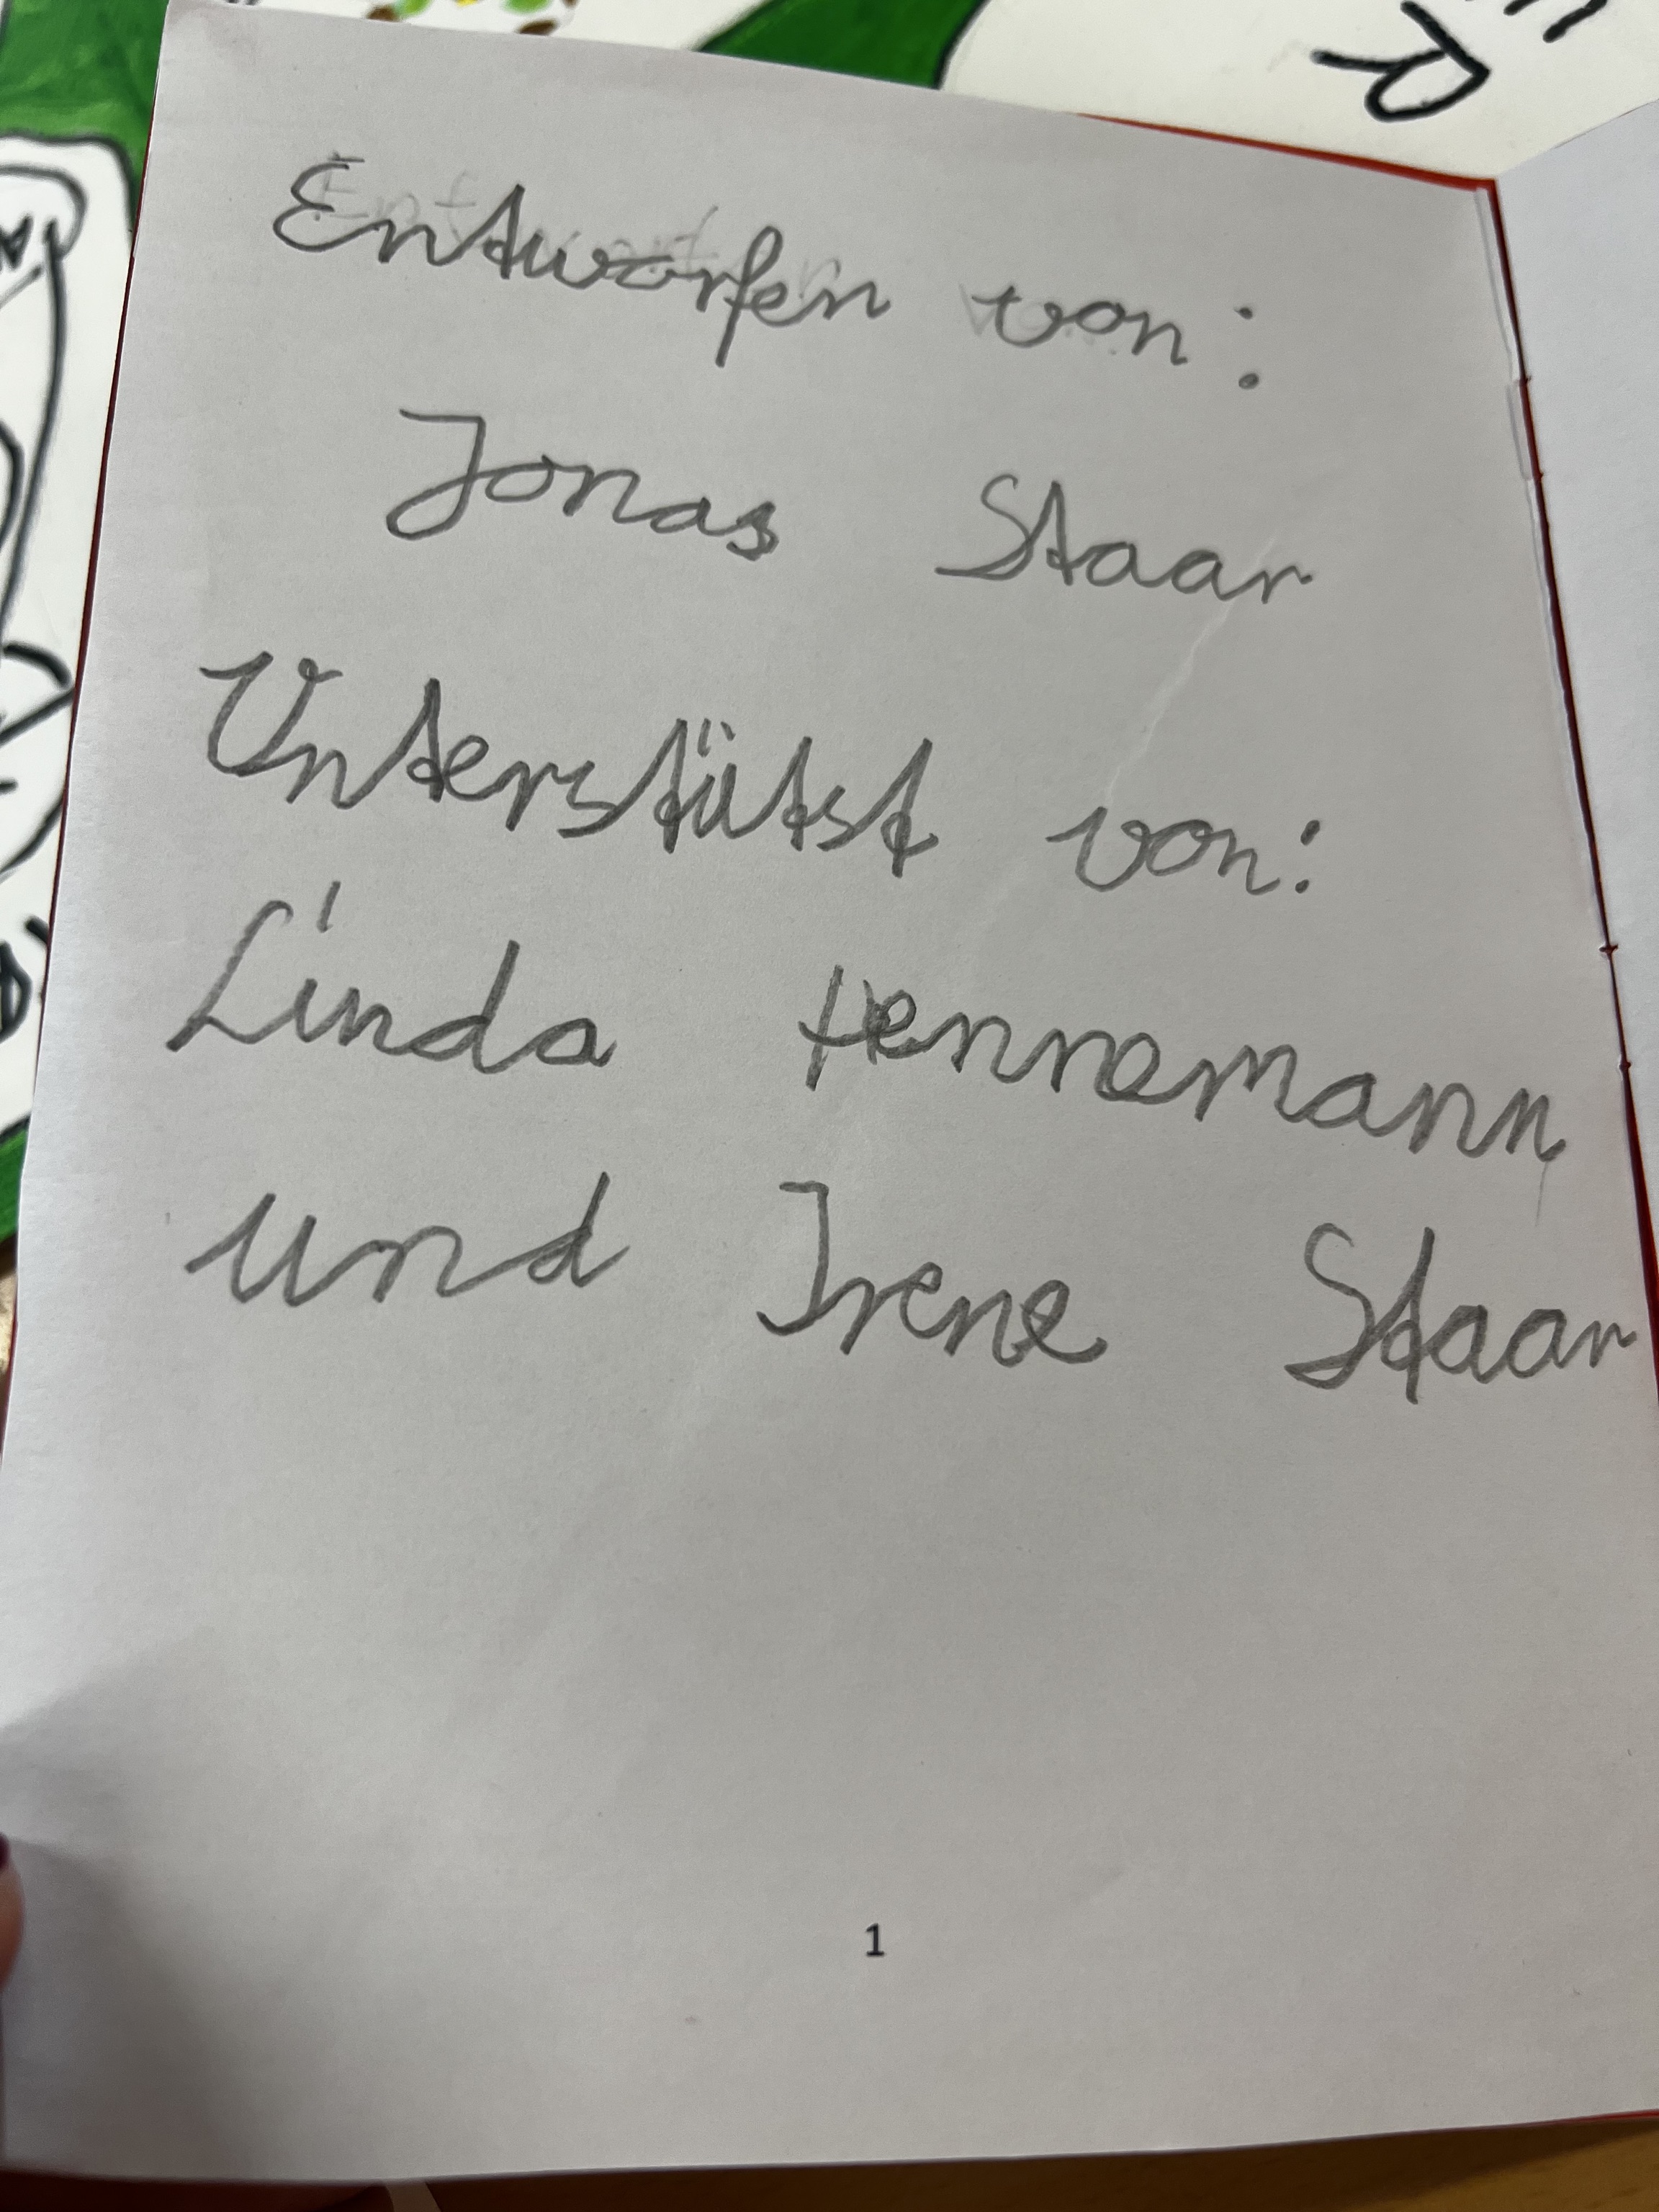 Entworfen von:
Jonas Staar
Unterstütst von:
Linda Hennemann
und Irene Staar
1